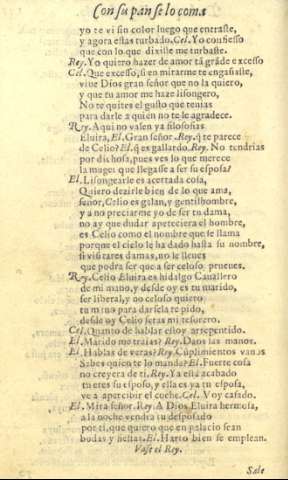 Con su pan se lo coma
yo te vi sin color luego que entraste,
y agora estas turbado. Cel. Yo confiesso
que con lo que dixiste me turbaste.
Rey. Yo quiero hazer de amor tã grãde excesso
Cel. Que excesso, si en mirarme te engañaste,
viue Dios gran señor que no la quiero,
y que tu amor me haze lisongero,
No te quites el gusto que tenias
para darle a quien no te le agradece.
Rey. Aqui no valen ya filosofias
Eluira, El. Gran señor. Rey. q̃ te parece
de Celio? El. q̃ es gallardo. Rey. No tendrias
por dichosa, pues ves lo que merece
la muger que llegasse a ser su esposa?
El. Lisongearle es acertada cosa,
Quiero dezirle bien de lo que ama,
señor, Celio es galan, y gentilhombre,
y a no preciarme yo de ser tu dama,
no ay que dudar apeteciera el hombre,
es Celio como el nombre que se llama
porque el cielo le ha dado hasta su nombre,
si visitares damas, no le lleues
que podra ser que a ser celoso prueues.
Rey. Celio Eluira es hidalgo Cauallero
de mi mano, y desde oy es tu marido,
ser liberal, y no celoso quiero
tu mano para darsela te pido,
desde oy Celio seras mi tesorero.
Cel. Quanto de hablar estoy arrepentido.
El. Marido me traias? Rey. Daos las manos.
El. Hablas de veras? Rey. Cũplimientos vanos
Sabes quien te lo manda? El. Fuerte cosa
no creyera de ti, Rey. Ya està acabado
tu eres su esposo, y ella es ya tu esposa,
ve a apercibir el coche. Cel. Voy casado.
El. Mira señor. Rey. A Dios Eluira hermosa,
a la noche vendra tu desposado
por ti, que quiero que en palacio sean
bodas y fiestas. El. Harto bien se emplean.
Vase el Rey.
Sale